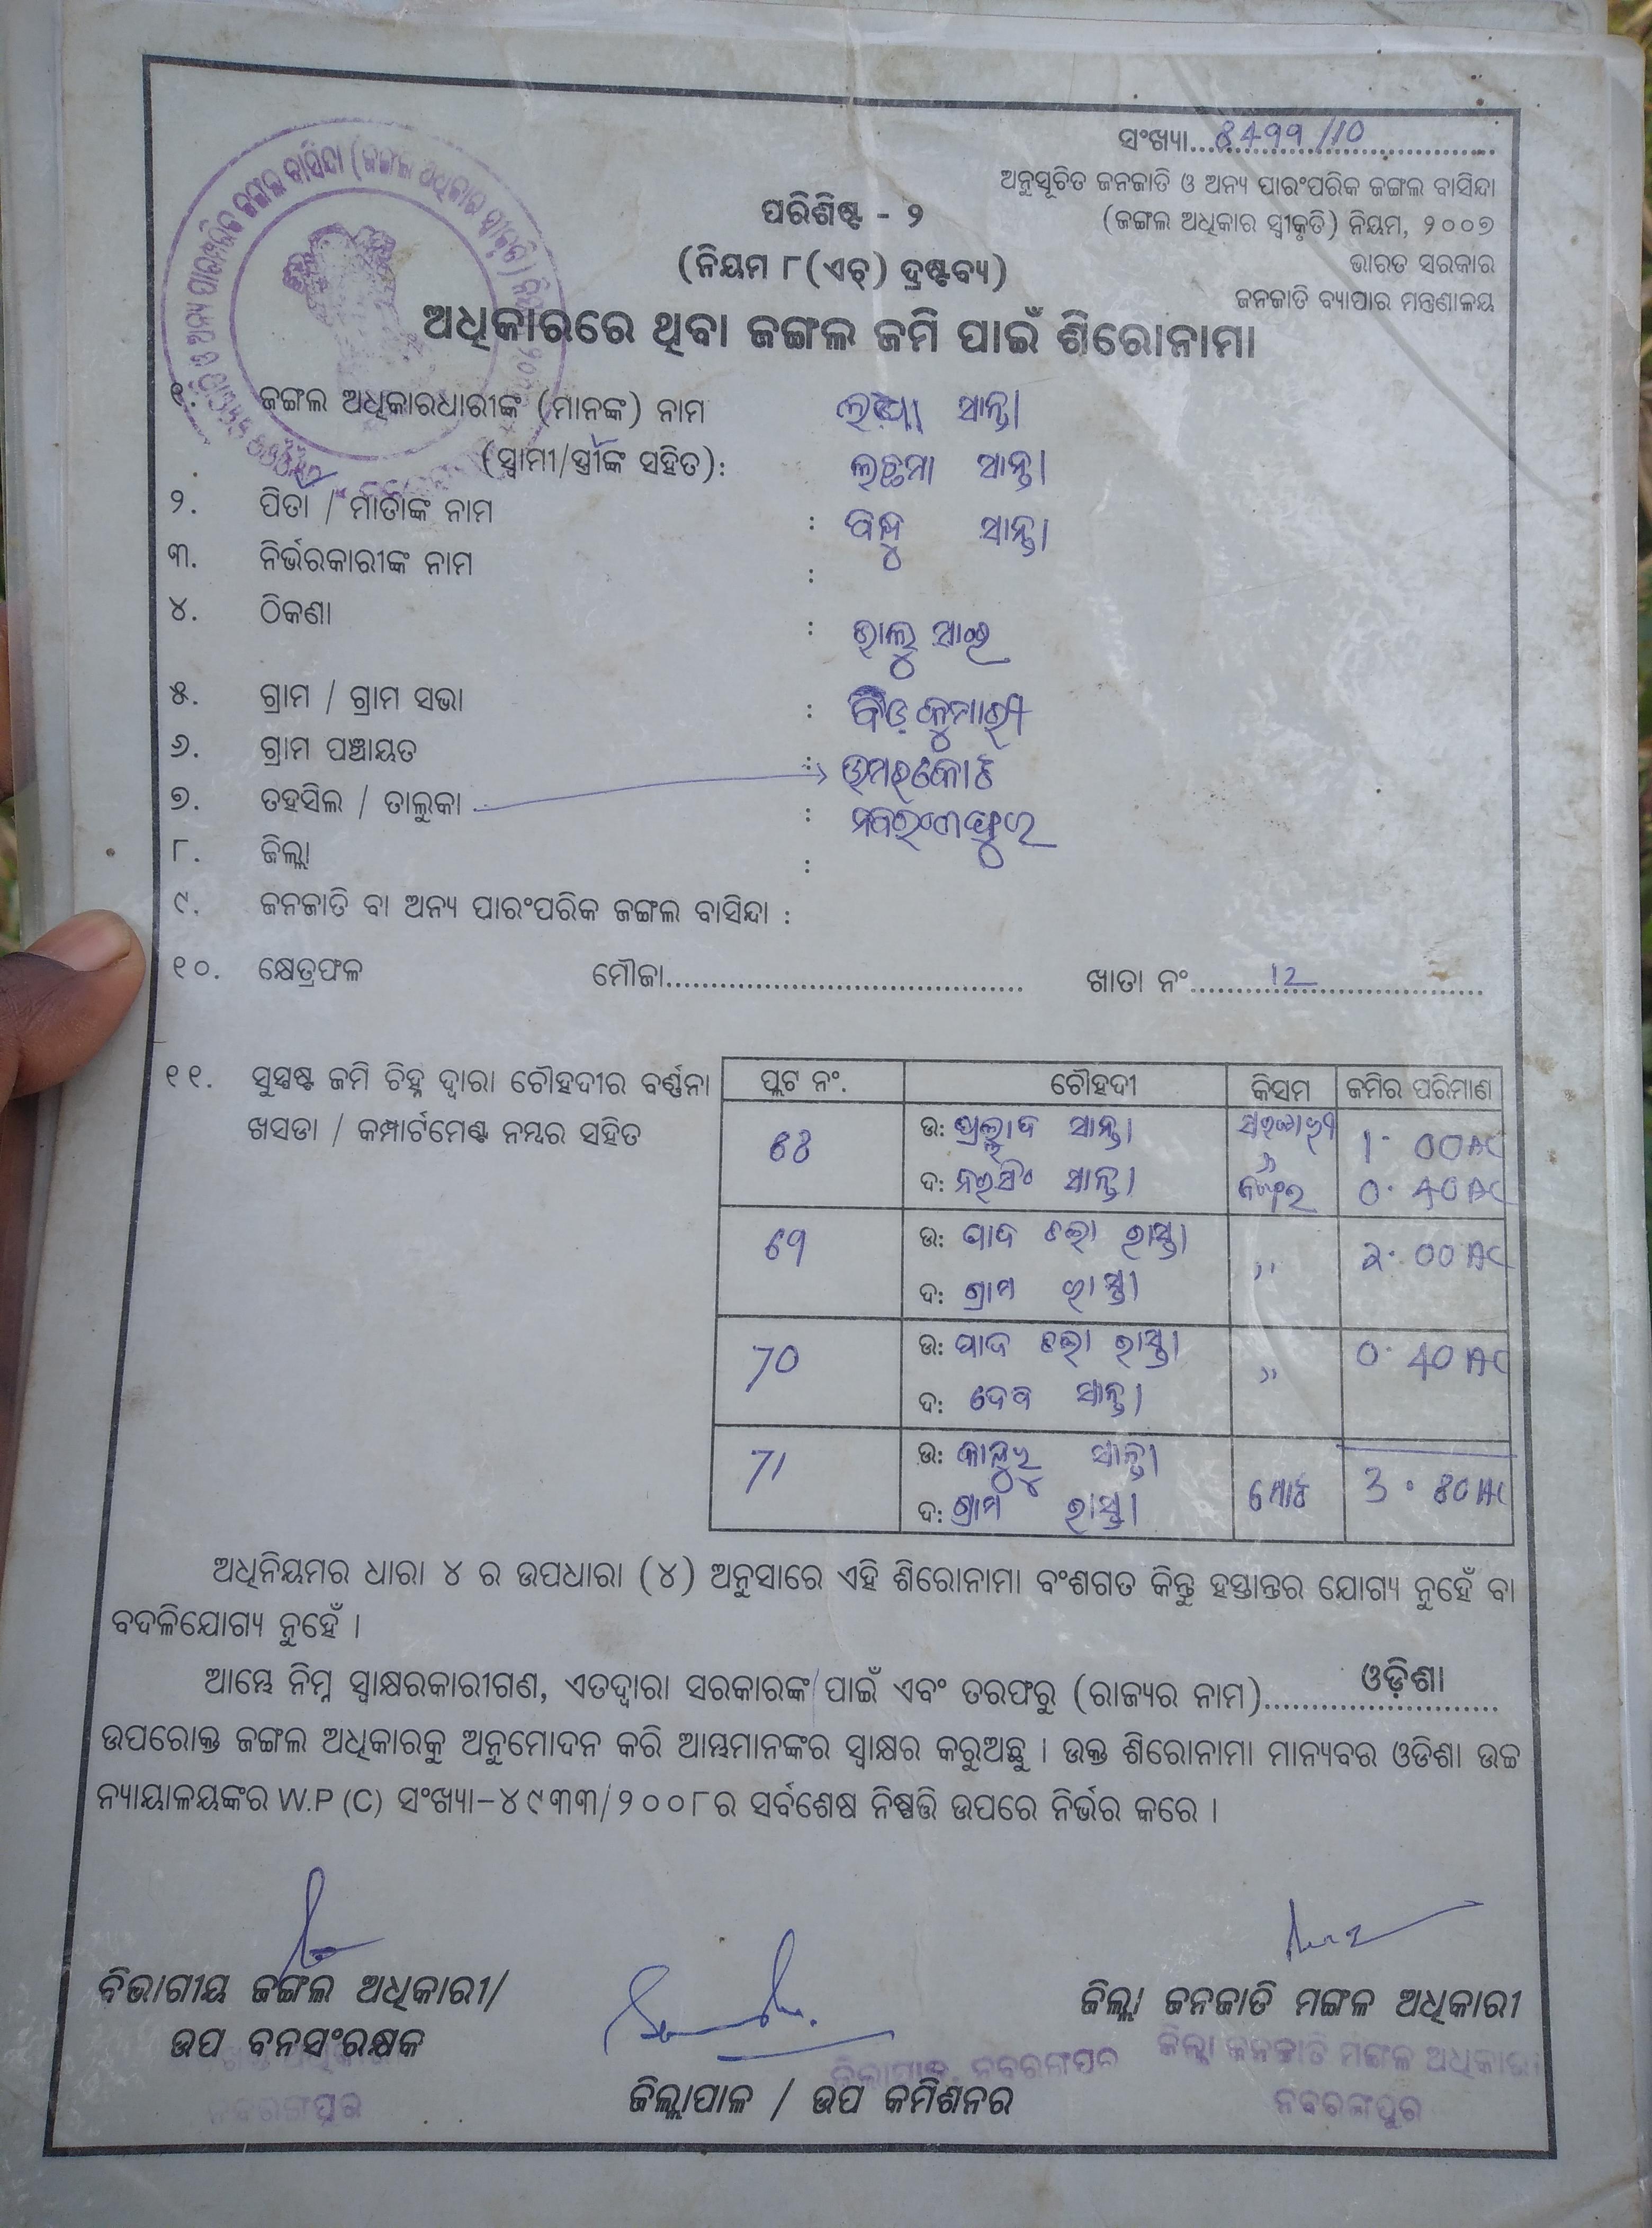 ସଂଖ୍ୟା.................................
ଅନୁସୂଚିତ ଜନଜାତି ଓ ଅନ୍ୟ ପାରଂପରିକ ଜଙ୍ଗଲ ବାସିନ୍ଦା
(ଜଙ୍ଗଲ ଅଧିକାର ସ୍ୱୀକୃତି) ନିୟମ, ୨୦୦୭
ଭାରତ ସରକାର
ଜନଜାତି ବ୍ୟାପାର ମନ୍ତ୍ରଣାଳୟ
ପରିଶିଷ୍ଟ - ୨
(ନିୟମ ୮(ଏଚ୍) ଦ୍ରଷ୍ଟବ୍ୟ)
ଅଧିକାରରେ ଥିବା ଜଙ୍ଗଲ ଜମି ପାଇଁ ଶିରୋନାମା
୧. ଜଙ୍ଗଲ ଅଧିକାରଧାରୀଙ୍କ (ମାନଙ୍କ) ନାମ ସାନ୍ତା
(ସ୍ୱାମୀ/ସ୍ତ୍ରୀଙ୍କ ସହିତ): ଲଛମା ସାନ୍ତା
୨. ପିତା / ମାତାଙ୍କ ନାମ : ସାନ୍ତା
୩. ନିର୍ଭରକାରୀଙ୍କ ନାମ :
୪. ଠିକଣା :
୫. ଗ୍ରାମ / ଗ୍ରାମ ସଭା :
୬. ଗ୍ରାମ ପଞ୍ଚାୟତ :
୭. ତହସିଲ / ତାଲୁକା : ଉମରକୋଟ
୮. ଜିଲ୍ଲା : ନବରଂଗପୁର
୯. ଜନଜାତି ବା ଅନ୍ୟ ପାରଂପରିକ ଜଙ୍ଗଲ ବାସିନ୍ଦା :
୧୦. କ୍ଷେତ୍ରଫଳ ମୌଜା....................................... ଖାତା ନଂ.........12..................
୧୧. ସୁସ୍ପଷ୍ଟ ଜମି ଚିହ୍ନ ଦ୍ୱାରା ଚୌହଦୀର ବର୍ଣ୍ଣନା
ଖସଡା / କମ୍ପାର୍ଟମେଣ୍ଟ ନମ୍ବର ସହିତ
ପ୍ଲଟ ନଂ. ଚୌହଦୀ କିସମ ଜମିର ପରିମାଣ
ଉ: ପ୍ରଲ୍ଲାଦ ସାନ୍ତା 1.00 AC
ଦ: ସାନ୍ତା 0.40 AC
ଉ: ରାସ୍ତା 2.00 AC
ଦ: ଗ୍ରାମ ରାସ୍ତା
70 ଉ: ରାସ୍ତା ,, 0.40 AC
ଦ: ଦେବ ସାନ୍ତା
71 ଉ: ସାନ୍ତା ମୋଟ 3.80 AC
ଦ: ଗ୍ରାମ ରାସ୍ତା
ଅଧିନିୟମର ଧାରା ୪ ର ଉପଧାରା (୪) ଅନୁସାରେ ଏହି ଶିରୋନାମା ବଂଶଗତ କିନ୍ତୁ ହସ୍ତାନ୍ତର ଯୋଗ୍ୟ ନୁହେଁ ବା
ବଦଳିଯୋଗ୍ୟ ନୁହେଁ ।
ଆମ୍ଭେ ନିମ୍ନ ସ୍ୱାକ୍ଷରକାରୀଗଣ, ଏତଦ୍ୱାରା ସରକାରଙ୍କ ପାଇଁ ଏବଂ ତରଫରୁ (ରାଜ୍ୟର ନାମ)........ଓଡ଼ିଶା........
ଉପରୋକ୍ତ ଜଙ୍ଗଲ ଅଧିକାରକୁ ଅନୁମୋଦନ କରି ଆମ୍ଭମାନଙ୍କର ସ୍ୱାକ୍ଷର କରୁଅଛୁ । ଉକ୍ତ ଶିରୋନାମା ମାନ୍ୟବର ଓଡିଶା ଉଚ୍ଚ
ନ୍ୟାୟାଳୟଙ୍କର W.P (C) ସଂଖ୍ୟା-୪୯୩୩/୨୦୦୮ର ସର୍ବଶେଷ ନିଷ୍ପତ୍ତି ଉପରେ ନିର୍ଭର କରେ ।
ବିଭାଗୀୟ ଜଙ୍ଗଲ ଅଧିକାରୀ/
ଉପ ବନସଂରକ୍ଷକ
ନବରଙ୍ଗପୁର
ଜିଲ୍ଲାପାଳ, ନବରଙ୍ଗପୁର
ଜିଲ୍ଲାପାଳ / ଉପ କମିଶନର
ଜିଲ୍ଲା ଜନଜାତି ମଙ୍ଗଳ ଅଧିକାରୀ
ଜିଲ୍ଲା ଜନଜାତି ମଙ୍ଗଳ ଅଧିକାରୀ
ନବରଙ୍ଗପୁର